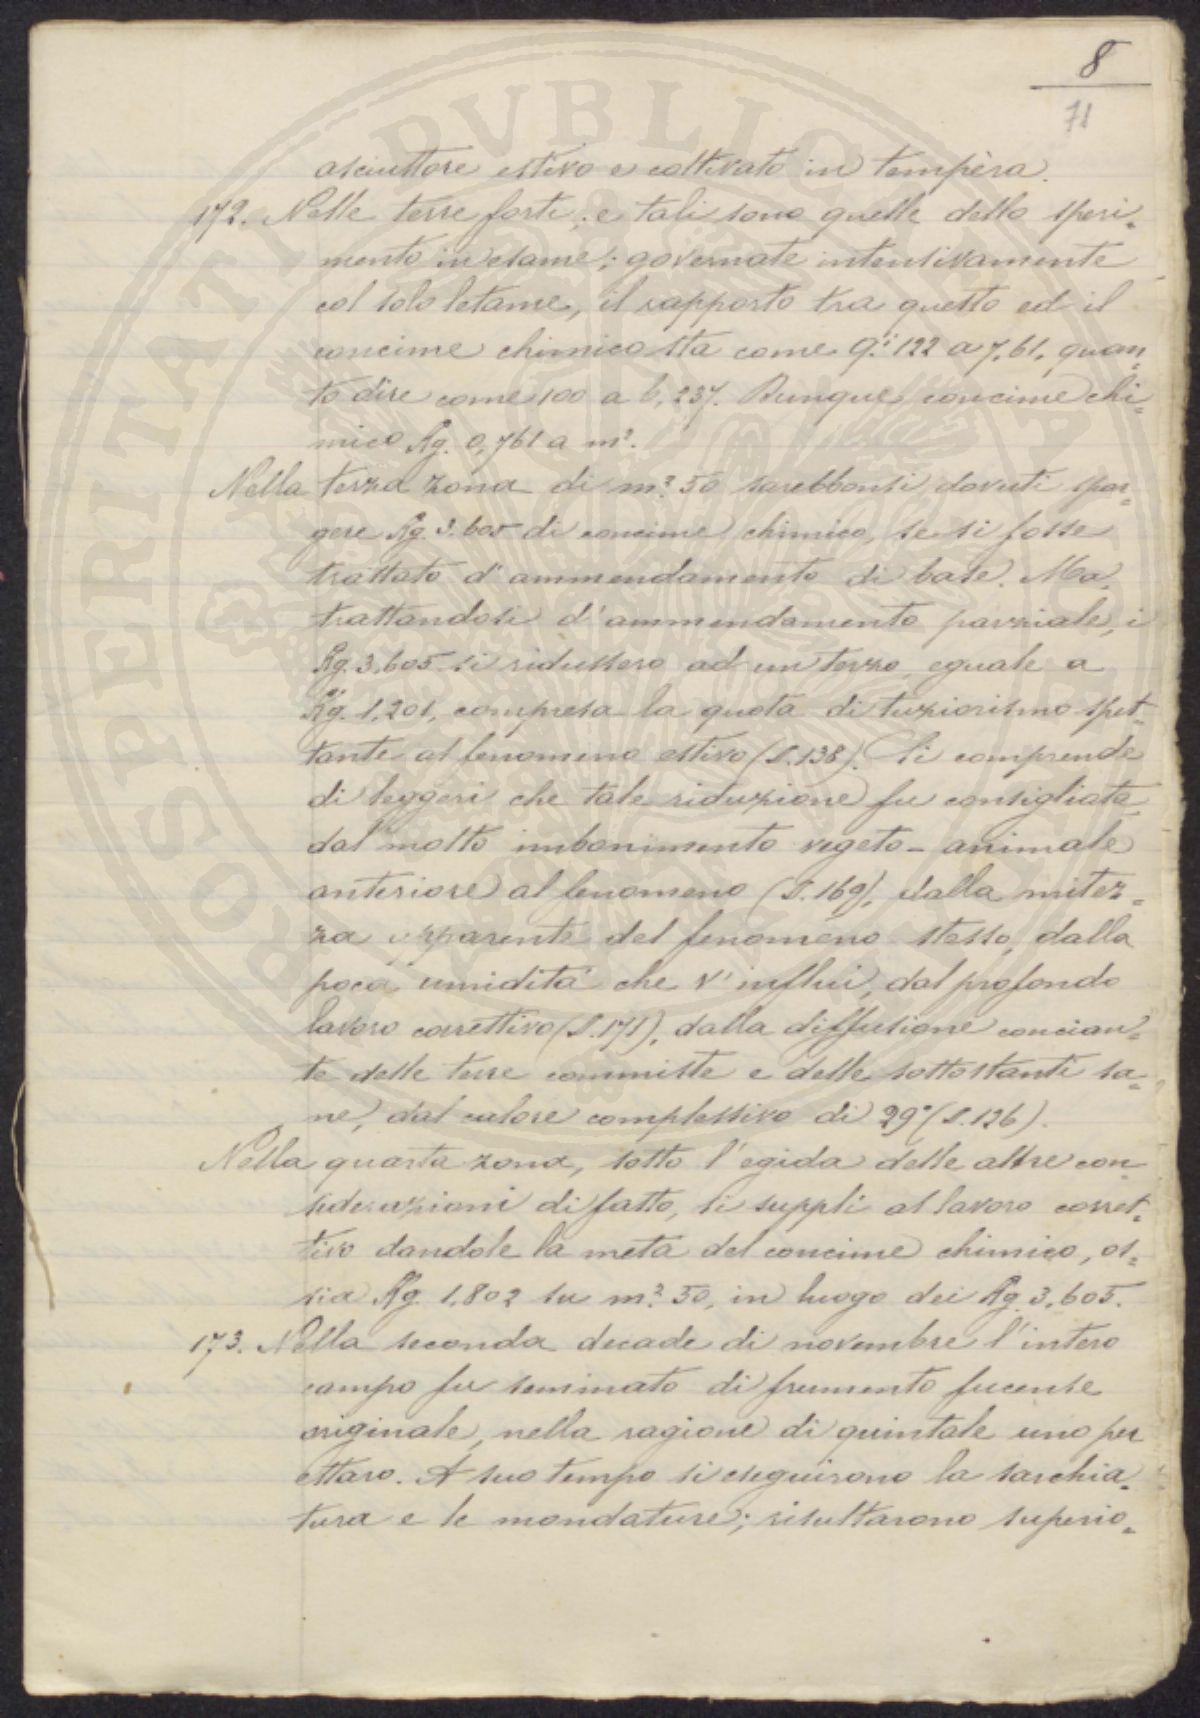 8
71
asciuttore estivo e coltivato in tempèra.
172. Nelle terre forti, e tali sono quelle dello speri=
mento in esame, governate intensivamente
col solo letame, il rapporto tra questo ed il
concime chimico sta come q.i 122 a 7,61, quan=
to dire come 100 a 6,237. Dunque concime chi=
mico Kg. 0,761 a m².
Nella terza zona di m². 50 sarebbonsi dovuti spar=
gere Kg. 3.605 di concime chimico, se si fosse
trattato d'ammendamento di base. Ma,
trattandosi d'ammendamento parziale, i
Kg. 3,605 si ridussero ad un terzo, eguale a
Kg. 1,201, compresa la quota di tuziorismo spet=
tante al fenomeno estivo (S. 138). Si comprende
di leggeri che tale riduzione fu consigliata
dal molto imbonimento vegeto-animale
anteriore al fenomeno (S. 169), dalla mitez=
za apparente del fenomeno stesso, dalla
poca umidità che v'influì, dal profondo
lavoro correttivo (S. 171), dalla diffusione concian=
te delle terre commiste e delle sottostanti sa=
ne, dal calore complessivo di 29° (S. 126).
Nella quarta zona, sotto l'egida delle altre con=
siderazioni di fatto, si supplì al lavoro corret=
tivo dandole la metà del concime chimico, os=
sia Kg. 1,802 su m². 50, in luogo dei Kg. 3,605.
173. Nella seconda decade di novembre l'intero
campo fu seminato di frumento fucense
originale, nella ragione di quintale uno per
ettaro. A suo tempo si eseguirono la sarchia=
tura e le mondature; risultarono superio=
PROSPERITATI PVBLICAE